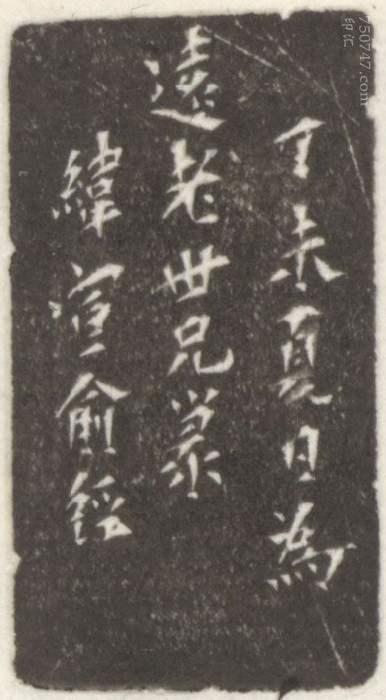 丁未夏日為
遠老世兄篆
緯俞
750747.com
印汇